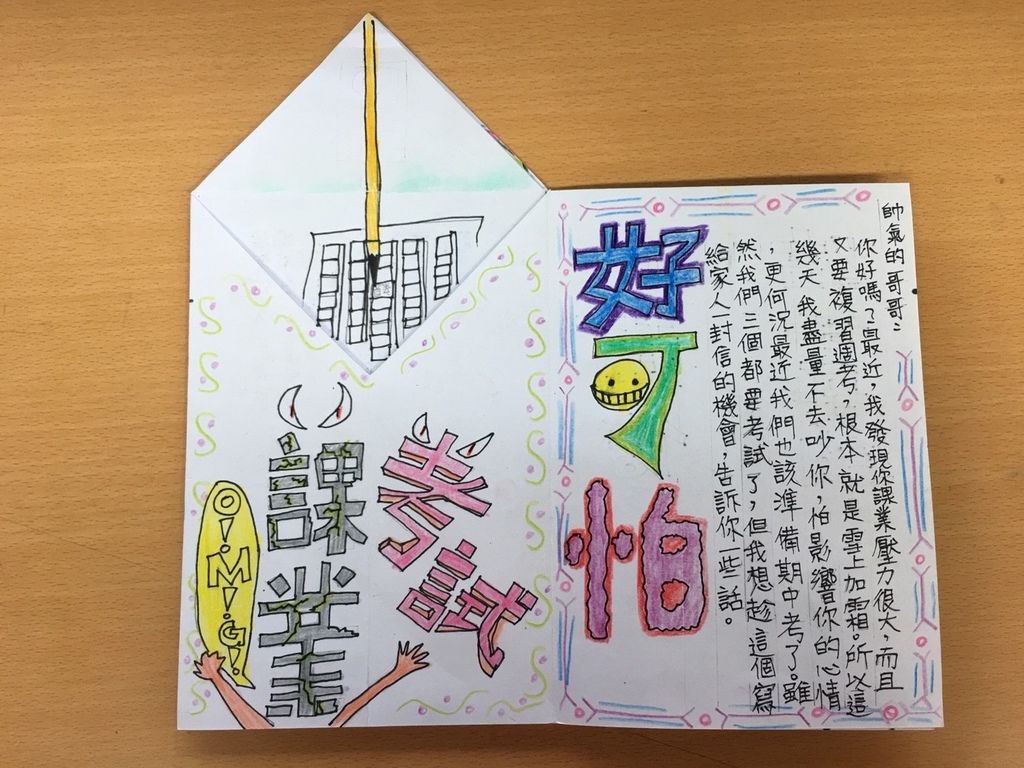 帥氣的哥哥：
你好嗎？最近，我發現你課業壓力很大，而且
又要複習週考，根本就是雪上加霜。所以這
幾天我盡量不去吵你，怕影響你的心情
，更何況最近我們也該準備期中考了。雖
然我們三個都要考試了，但我想趁這個寫
給家人一封信的機會，告訴你一些話。
好可怕
考試
課業
O!M!G!